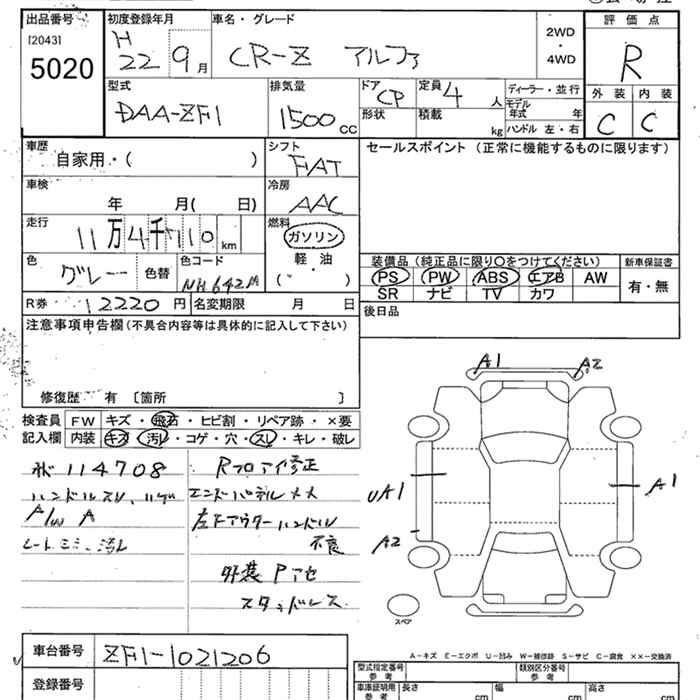 出品番号
[2043]
5020
初度登録年月
H 22 9月
車名・グレード
CR-Z アルファ
2WD・4WD
評価点
R
外装 内装
C C
型式
DAA-ZF1
排気量
1500cc
ドア
CP
形状
定員 4人
積載 kg
ディーラー・並行
モデル年式 年
ハンドル 左・右
車歴
自家用・( )
シフト
FAT
セールスポイント (正常に機能するものに限ります)
車検
年 月( 日)
冷房
AAC
走行
11万4千710km
燃料
ガソリン
軽油
( ・ )
色
グレー
色替
色コード
NH642M
装備品 (純正品に限り○をつけてください)
PS PW ABS エアB AW
SR ナビ TV カワ
新車保証書
有・無
R券 12220円
名変期限 月 日
後日品
注意事項申告欄 (不具合内容等は具体的に記入して下さい)
修復歴 有 [箇所 ]
検査員記入欄
FW キズ・飛石・ヒビ割・リペア跡・×要
内装 キズ・汚レ・コゲ・穴・スレ・キレ・破レ
114708
ハンドルスレ、ハゲ
A/W A
シートシミ、汚レ
Rフロア修正
エンドパネル
左ドアアウターハンドル
不良
外装 Pアセ
スタッドレス
A1 A2
UA1 A1
A2
スペア
車台番号
ZF1-1021206
登録番号
A-キズ E-エクボ U-凹み W-補修跡 S-サビ C-腐食 ××-交換済
型式指定番号 参考
類別区分番号 参考
車庫証明用 参考
長さ cm
幅 cm
高さ cm